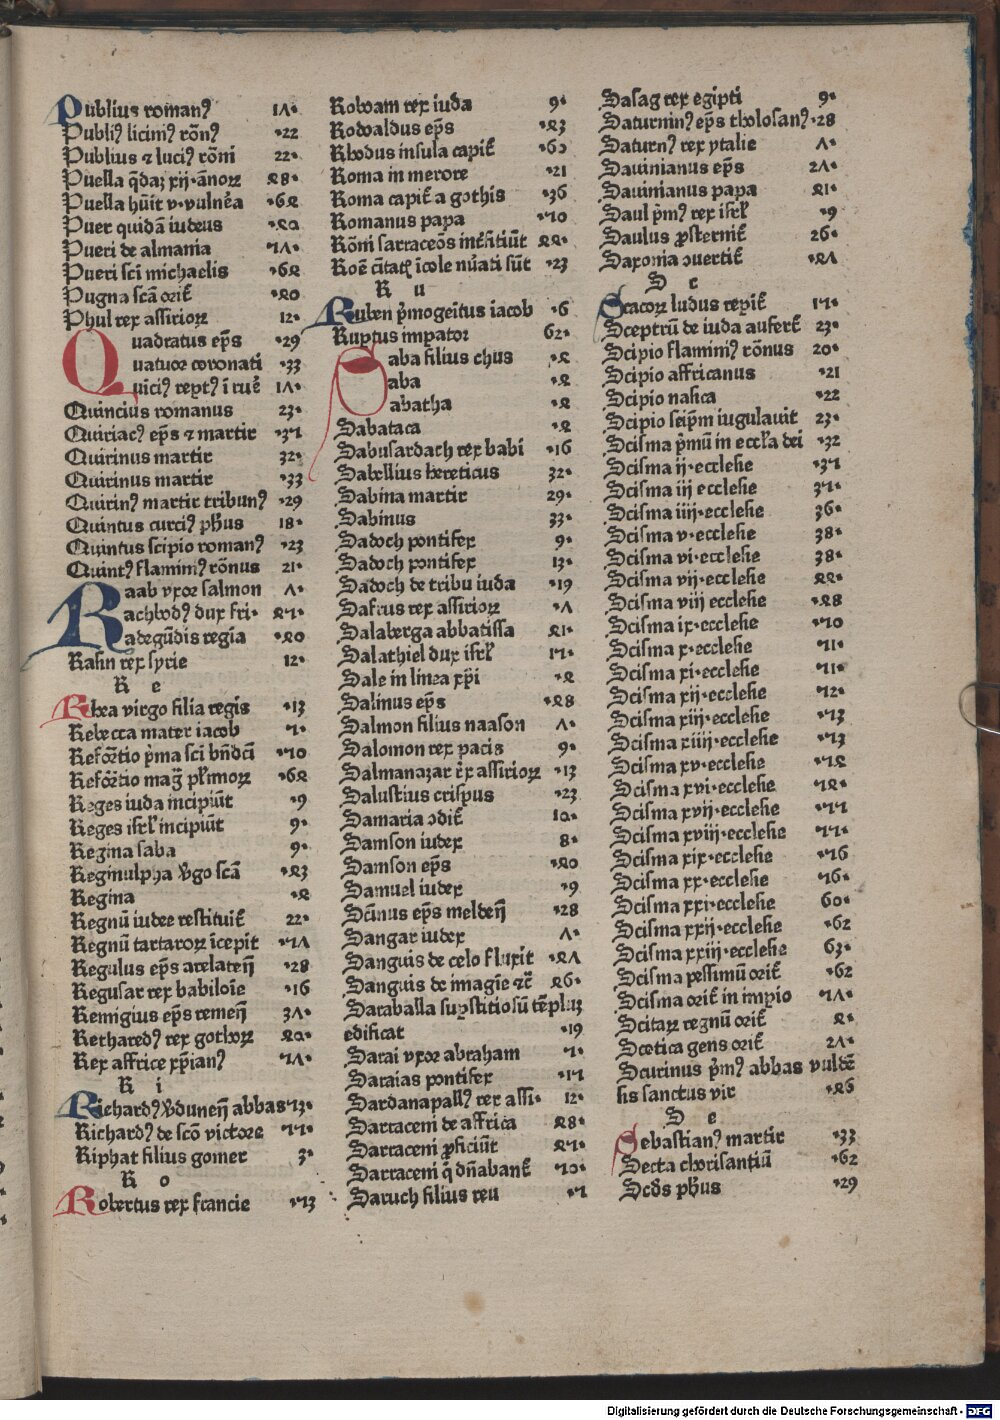 Publius romanꝰ 17·
Publiꝰ liciniꝰ rōnꝰ ·22
Publius ⁊ luciꝰ rōni 22·
Puella q̄daꝫ xij·ānoꝝ 48·
Puella hūit v·vulnēa ·64
Puer quidā iudeus ·40
Pueri de almania 57·
Pueri sci michaelis ·64
Pugna scā orit̄ ·40
Phul rex assirioꝝ 12·
Quadratus ep̄s ·29
Quatuor coronati ·33
Quiciꝰ reptꝰ ī ruē 17·
Quincius romanus 23·
Quiriacꝰ ep̄s ⁊ martir ·35
Quirinus martir 32·
Quirinus martir ·33
Quirinꝰ martir tribunꝰ ·29
Quintus curciꝰ ph̄us 18·
Quintus scipio romanꝰ ·23
Quintꝰ flaminiꝰ rōnus 21·
Raab vxor salmon 7·
Rachbodꝰ dux fri· 45·
Radegūdis regīa ·40
Rasin rex syrie 12·
R e
Rhea virgo filia regis ·13
Rebecca mater iacob ·5·
Refor̄tio p̄ma sci bn̄dcī ·50
Refor̄tio maḡ pl̄imoꝝ ·64
Reges iuda incipiūt ·9
Reges isrl̄ incipiūt 9·
Regina saba 9·
Reginulpha v̄go scā ·43
Regina ·4
Regnū iudee restituit̄ 22·
Regnū tartaroꝝ īcepit ·57
Regulus ep̄s arelateñ ·28
Regusar rex babiloīe ·16
Remigius ep̄s remeñ 37·
Rethaređꝰ rex gothoꝝ 40·
Rex affrice xp̄ianꝰ ·57·
R i
Richardꝰ v̄duneñ abbas 53·
Richardꝰ de scō victore ·55·
Riphat filius gomer 3·
R o
Robertus rex francie ·53
Roboam rex iuda 9·
Rodoaldus ep̄s ·43
Rhodus insula capit̄ ·60
Roma in merore ·21
Roma capit̄ a gothis ·36
Romanus papa ·50
Rōni sarraceōs int̄ficiūt 44·
Roē cītatꝭ īcole nūati sūt ·23
R u
Ruben p̄mogeitus iacob ·6
Ruptus impator 62·
Saba filius chus ·4
Saba ·4
Sabatha ·4
Sabataca ·4
Sabusardach rex babi ·16
Sabellius hereticus 32·
Sabina martir 29·
Sabinus 33·
Sadoch pontifex 9·
Sadoch pontifex 13·
Sadoch de tribu iuda ·19
Safrus rex assirioꝝ ·7
Salaberga abbatissa 41·
Salathiel dux isrl̄ 15·
Sale in linea xp̄i ·4
Salinus ep̄s ·48
Salmon filius naason 7·
Salomon rex pacis 9·
Salmanazar rex assirioꝝ ·13
Salustius crispus ·23
Samaria ↄdit̄ 10·
Samson iudex 8·
Samson ep̄s ·40
Samuel iudex ·9
Scīnus ep̄s meldeñ ·28
Sangar iudex 7·
Sanguis de celo fluxit ·47
Sanguis de imagīe ⁊c̄ 46·
Saraballa sup̱stitiosū tēpluꝫ
edificat ·19
Sarai vxor abraham ·5·
Saraias pontifex ·15
Sardanapallꝰ rex assi· 12·
Sarraceni de affrica 48·
Sarraceni ꝓficiūt 45·
Sarraceni q̇ dn̄abant̄ ·50·
Saruch filius reu ·5
Sasag rex egipti 9·
Saturninꝰ ep̄s tholosanꝰ ·28
Saturnꝰ rex ytalie 7·
Sauinianus ep̄s 27·
Sauinianus papa 41·
Saul p̄mꝰ rex isrl̄ ·9
Saulus ꝓsternit̄ 26·
Saxonia ↄuertit̄ ·47
S c
Scacoꝝ ludus repit̄ 15·
Sceptrū de iuda aufert̄ 23·
Scipio flaminiꝰ rōnus 20·
Scipio affricanus ·21
Scipio nasica ·22
Scipio seip̄m iugulauit 23·
Scisma p̄mū in eccl̄ia dei ·32
Scisma ij·ecclesie ·35
Scisma iij ecclesie 35·
Scisma iiij·ecclesie 36·
Scisma v·ecclesie 38·
Scisma vi·ecclesie 38·
Scisma vij·ecclesie 44·
Scisma viij ecclesie ·48
Scisma ix·ecclesie ·50
Scisma x·ecclesie ·51·
Scisma xi·ecclesie ·51·
Scisma xij·ecclesie ·52·
Scisma xiij·ecclesie ·53
Scisma xiiij·ecclesie ·53
Scisma xv·ecclesie ·54
Scisma xvi·ecclesie ·54·
Scisma xvij·ecclesie ·55
Scisma xviij·ecclesie ·55·
Scisma xix·ecclesie ·56
Scisma xx·ecclesie ·56·
Scisma xxi·ecclesie 60·
Scisma xxij·ecclesie ·62
Scisma xxiij·ecclesie 63·
Scisma pessimū orit̄ ·62
Scisma orit̄ in impio ·57·
Scitaꝝ regnū orit̄ 4·
Scotica gens orit̄ 27·
Scurinus p̄mꝰ abbas vuldē
sis sanctus vir ·46
S e
Sebastianꝰ martir ·33
Secta chorisantiū ·62
Scd̄s ph̄us ·29
Digitalisierung gefördert durch die Deutsche Forschungsgemeinschaft - DFG